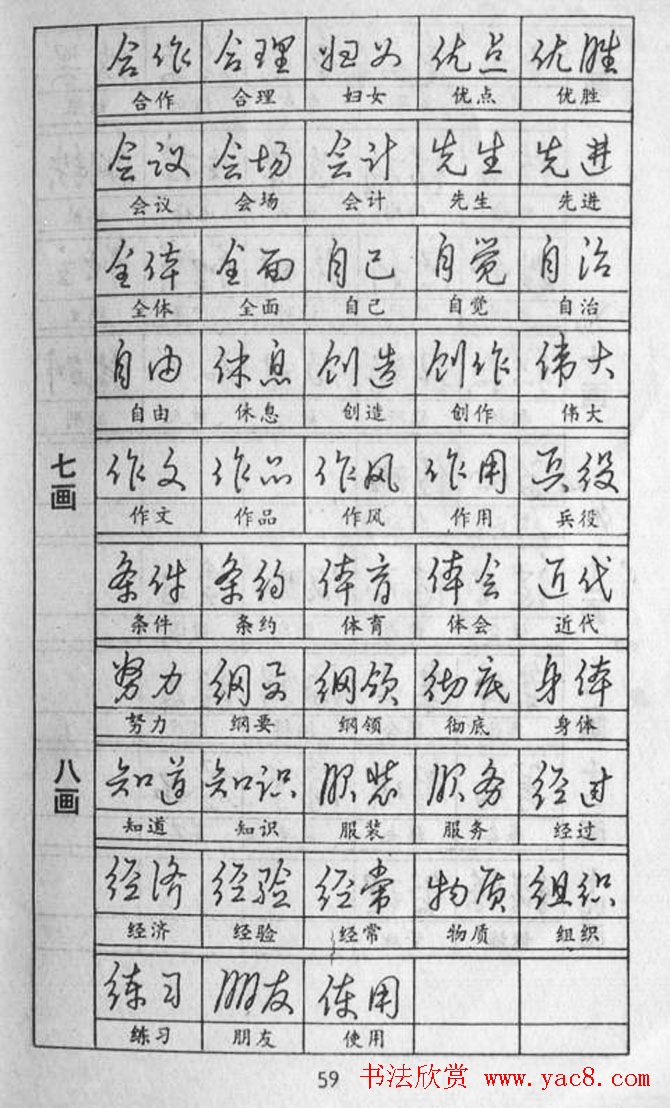 合作 合理 妇女 优点 优胜
合作 合理 妇女 优点 优胜
会议 会场 会计 先生 先进
会议 会场 会计 先生 先进
全体 全面 自己 自觉 自治
全体 全面 自己 自觉 自治
自由 休息 创造 创作 伟大
自由 休息 创造 创作 伟大
七画
作文 作品 作风 作用 兵役
作文 作品 作风 作用 兵役
条件 条约 体育 体会 近代
条件 条约 体育 体会 近代
努力 纲要 纲领 彻底 身体
努力 纲要 纲领 彻底 身体
八画
知道 知识 服装 服务 经过
知道 知识 服装 服务 经过
经济 经验 经常 物质 组织
经济 经验 经常 物质 组织
练习 朋友 使用
练习 朋友 使用
59
书法欣赏 www.yac8.com